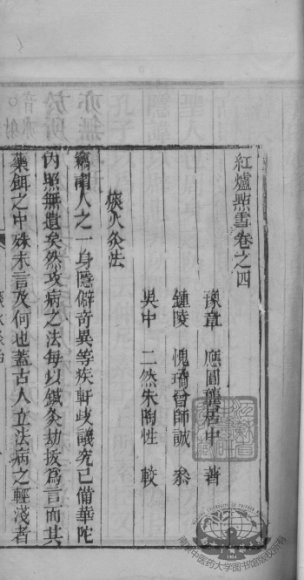 紅爐㸃雪卷之四
豫章 應圓龔居中 著
鍾陵 愧瑃曾師誠 叅
吳中 二然朱陶性 較
痰火灸法
竊謂人之一身隱僻奇異等疾軒歧議究已備華陀
內照無遺矣然攻病之法每以鍼灸劫拔爲言而其
藥餌之中殊未言及何也蓋古人立法病之輕淺者
南京中医药大学图书馆版权所有